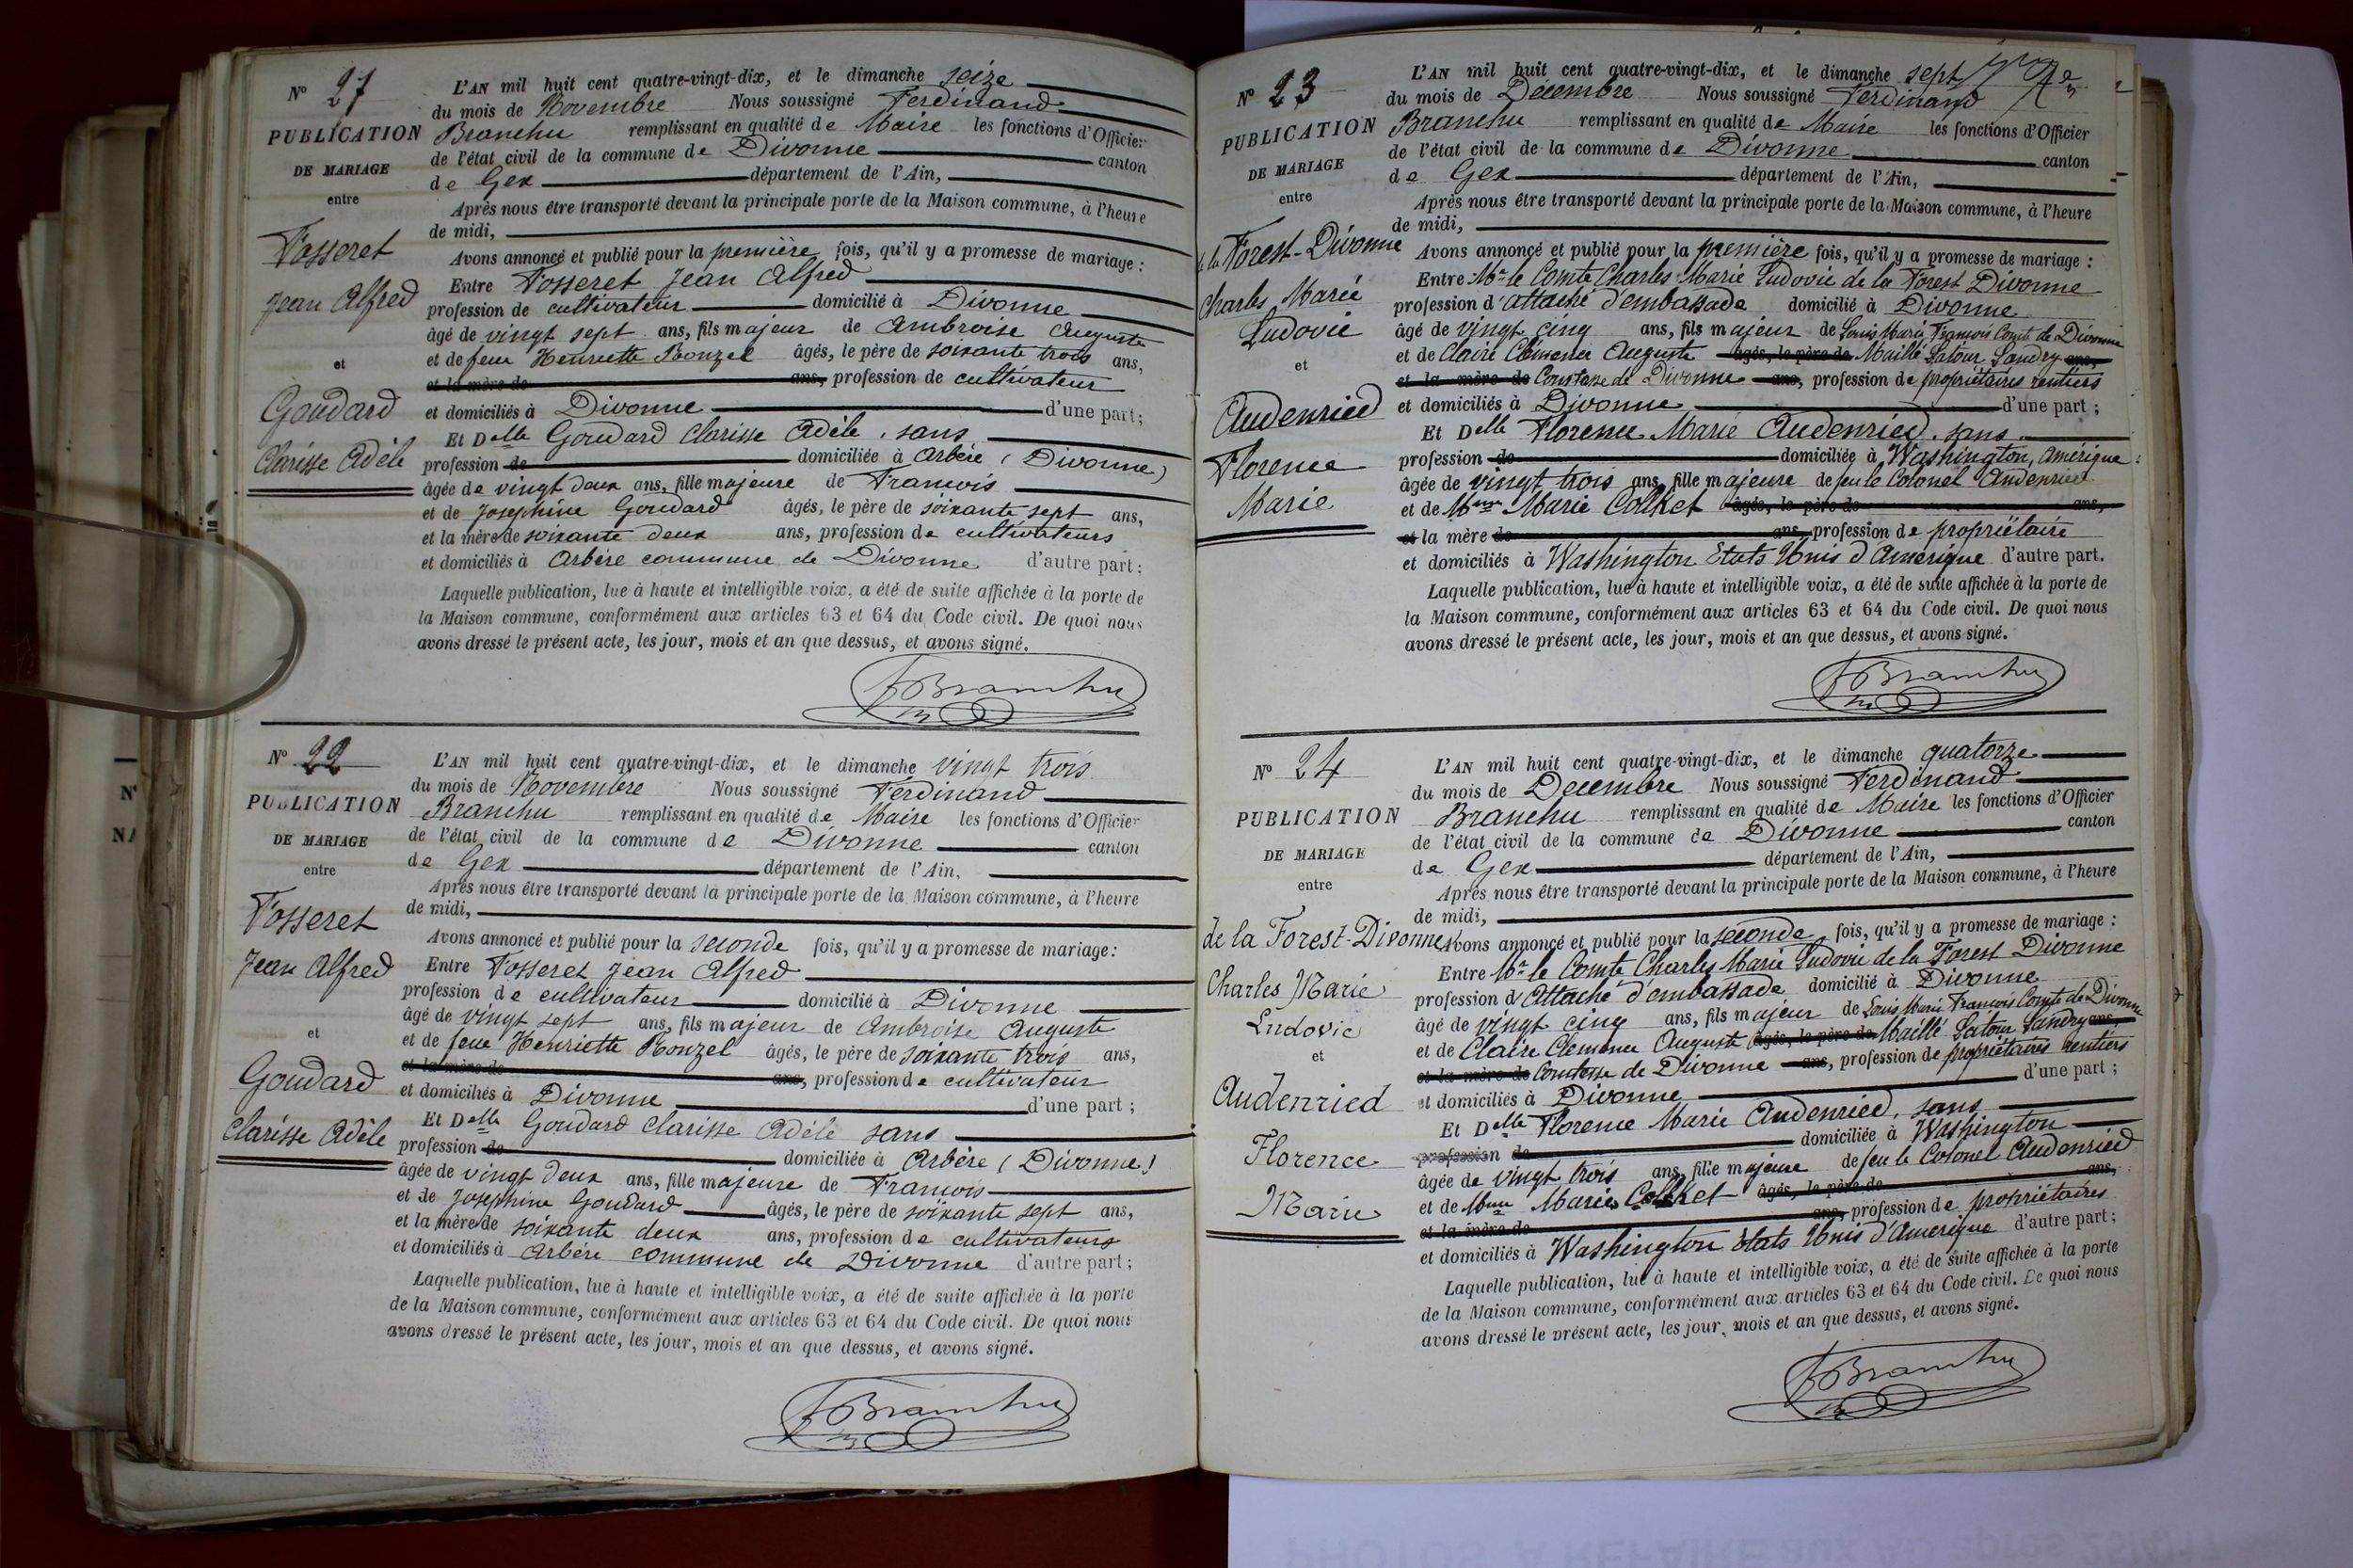 N° 21
PUBLICATION
DE MARIAGE
entre
Fosseret
Jean Alfred
et
Goudard
Clarisse Adèle
L'AN mil huit cent quatre-vingt-dix, et le dimanche seize
du mois de Novembre Nous soussigné Ferdinand
Branchu remplissant en qualité de Maire les fonctions d'Officier
de l'état civil de la commune de Divonne canton
de Gex département de l'Ain,
Après nous être transporté devant la principale porte de la Maison commune, à l'heure
de midi,
Avons annoncé et publié pour la première fois, qu'il y a promesse de mariage :
Entre Fosseret Jean Alfred
profession de cultivateur domicilié à Divonne
âgé de vingt sept ans, fils majeur de Ambroise Auguste
et de feue Henriette Ronzel âgés, le père de soixante trois ans,
et la mère de ans, profession de cultivateur
et domiciliés à Divonne d'une part ;
Et Delle Goudard Clarisse Adèle, sans
profession de domiciliée à Arbère (Divonne)
âgée de vingt deux ans, fille majeure de Francois
et de Josephine Goudard âgés, le père de soixante sept ans,
et la mère de soixante deux ans, profession de cultivateurs
et domiciliés à Arbère commune de Divonne d'autre part ;
Laquelle publication, lue à haute et intelligible voix, a été de suite affichée à la porte de
la Maison commune, conformément aux articles 63 et 64 du Code civil. De quoi nous
avons dressé le présent acte, les jour, mois et an que dessus, et avons signé.
FBranchu
N° 22
PUBLICATION
DE MARIAGE
entre
Fosseret
Jean Alfred
et
Goudard
Clarisse Adèle
L'AN mil huit cent quatre-vingt-dix, et le dimanche vingt trois
du mois de Novembre Nous soussigné Ferdinand
Branchu remplissant en qualité de Maire les fonctions d'Officier
de l'état civil de la commune de Divonne canton
de Gex département de l'Ain,
Après nous être transporté devant la principale porte de la Maison commune, à l'heure
de midi,
Avons annoncé et publié pour la seconde fois, qu'il y a promesse de mariage :
Entre Fosseret Jean Alfred
profession de cultivateur domicilié à Divonne
âgé de vingt sept ans, fils majeur de Ambroise Auguste
et de feue Henriette Ronzel âgés, le père de soixante trois ans,
et la mère de ans, profession de cultivateur
et domiciliés à Divonne d'une part ;
Et Delle Goudard Clarisse Adèle sans
profession de domiciliée à Arbère (Divonne)
âgée de vingt deux ans, fille majeure de Francois
et de Josephine Goudard âgés, le père de soixante sept ans,
et la mère de soixante deux ans, profession de cultivateurs
et domiciliés à Arbère commune de Divonne d'autre part ;
Laquelle publication, lue à haute et intelligible voix, a été de suite affichée à la porte
de la Maison commune, conformément aux articles 63 et 64 du Code civil. De quoi nous
avons dressé le présent acte, les jour, mois et an que dessus, et avons signé.
FBranchu
N° 23
PUBLICATION
DE MARIAGE
entre
de la Forest-Divonne
Charles Marie
Ludovic
et
Audenried
Florence
Marie
L'AN mil huit cent quatre-vingt-dix, et le dimanche sept
du mois de Décembre Nous soussigné Ferdinand
Branchu remplissant en qualité de Maire les fonctions d'Officier
de l'état civil de la commune de Divonne canton
de Gex département de l'Ain,
Après nous être transporté devant la principale porte de la Maison commune, à l'heure
de midi,
Avons annoncé et publié pour la première fois, qu'il y a promesse de mariage :
Entre Mr le Comte Charles Marie Ludovic de la Forest Divonne
profession d'attaché d'embassade domicilié à Divonne
âgé de vingt cinq ans, fils majeur de Louis Marie François Comte de Divonne
et de Claire Clémence Auguste âgés, le père de Maillé Latour Landry ans,
et la mère de Comtesse de Divonne ans, profession de propriétaires rentiers
et domiciliés à Divonne d'une part ;
Et Delle Florence Marie Audenried, sans
profession de domiciliée à Washington, Amérique
âgée de vingt trois ans, fille majeure de feu le Colonel Audenried
et de Mme Marie Colket âgés, le père de ans,
et la mère de ans, profession de propriétaire
et domiciliés à Washington Etats Unis d'Amérique d'autre part.
Laquelle publication, lue à haute et intelligible voix, a été de suite affichée à la porte de
la Maison commune, conformément aux articles 63 et 64 du Code civil. De quoi nous
avons dressé le présent acte, les jour, mois et an que dessus, et avons signé.
FBranchu
N° 24
PUBLICATION
DE MARIAGE
entre
de la Forest-Divonne
Charles Marie
Ludovic
et
Audenried
Florence
Marie
L'AN mil huit cent quatre-vingt-dix, et le dimanche quatorze
du mois de Decembre Nous soussigné Ferdinand
Branchu remplissant en qualité de Maire les fonctions d'Officier
de l'état civil de la commune de Divonne canton
de Gex département de l'Ain,
Après nous être transporté devant la principale porte de la Maison commune, à l'heure
de midi,
Avons annoncé et publié pour la seconde fois, qu'il y a promesse de mariage :
Entre Mr le Comte Charles Marie Ludovic de la Forest Divonne
profession d'Attaché d'embassade domicilié à Divonne
âgé de vingt cinq ans, fils majeur de Louis Marie Francois Comte de Divonne
et de Claire Clemence Auguste âgés, le père de Maillé Latour Landry ans,
et la mère de Comtesse de Divonne ans, profession de propriétaires rentiers
et domiciliés à Divonne d'une part ;
Et Delle Florence Marie Audenried, sans
profession de domiciliée à Washington
âgée de vingt trois ans, fille majeure de feu le Colonel Audenried
et de Mme Marie Colket âgés, le père de ans,
et la mère de ans, profession de propriétaires
et domiciliés à Washington Etats Unis d'Amerique d'autre part ;
Laquelle publication, lue à haute et intelligible voix, a été de suite affichée à la porte
de la Maison commune, conformément aux articles 63 et 64 du Code civil. De quoi nous
avons dressé le présent acte, les jour, mois et an que dessus, et avons signé.
FBranchu